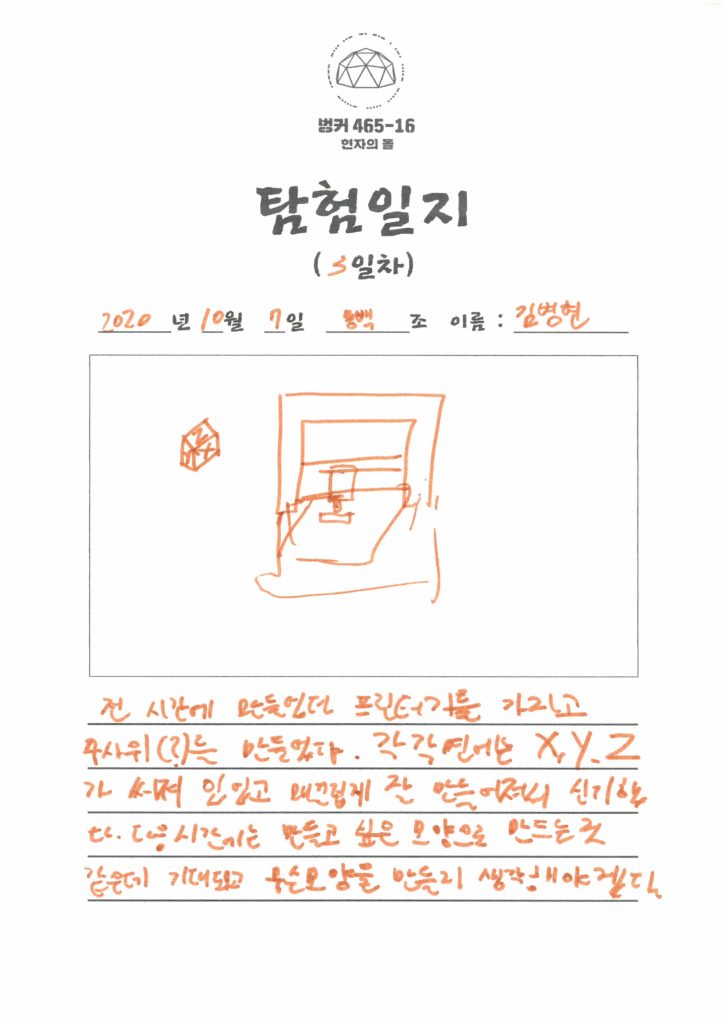 벙커 465-16
현자의 돌
탐험일지
(3일차)
2020년 10월 7일 동백조 이름 : 김병현
Z
X
전 시간에 만들었던 프린터기를 가지고
주사위(?)를 만들었다. 각각 면에는 X, Y, Z
가 써져 있었고 매끄럽게 잘 만들어져서 신기했
다. 다음시간에는 만들고 싶은 모양으로 만드는 것
같은데 기대되고 무슨모양을 만들지 생각해야겠다.